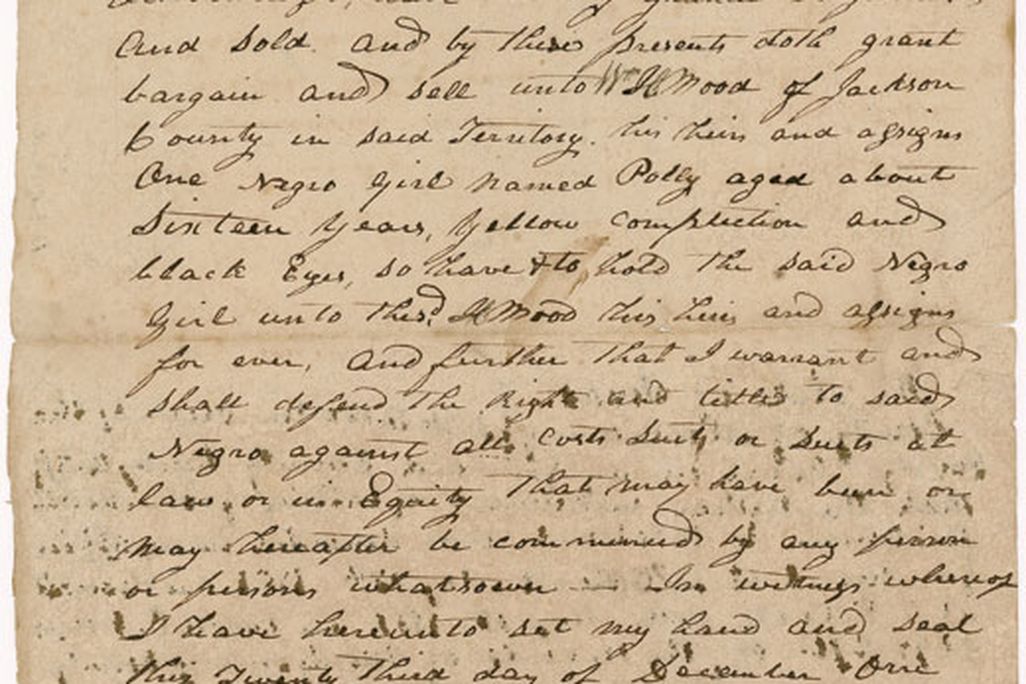 and Sold. and by these presents doth grant
bargain and sell unto Wm H Mood of Jackson
County in said Territory. his heirs and assigns
One Negro Girl named Polly aged about
Sixteen Years, Yellow complection and
black Eyes, so have & to hold the said Negro
Girl unto the sd. H Mood his heirs and assigns
for ever, and further that I warrant and
shall defend the Right and title to said
Negro against all costs suits or suits at
law or in Equity that may have been or
may hereafter be commenced by any person
or persons whatsoever — In witness whereof
I have hereunto set my hand and seal
this Twenty third day of December One